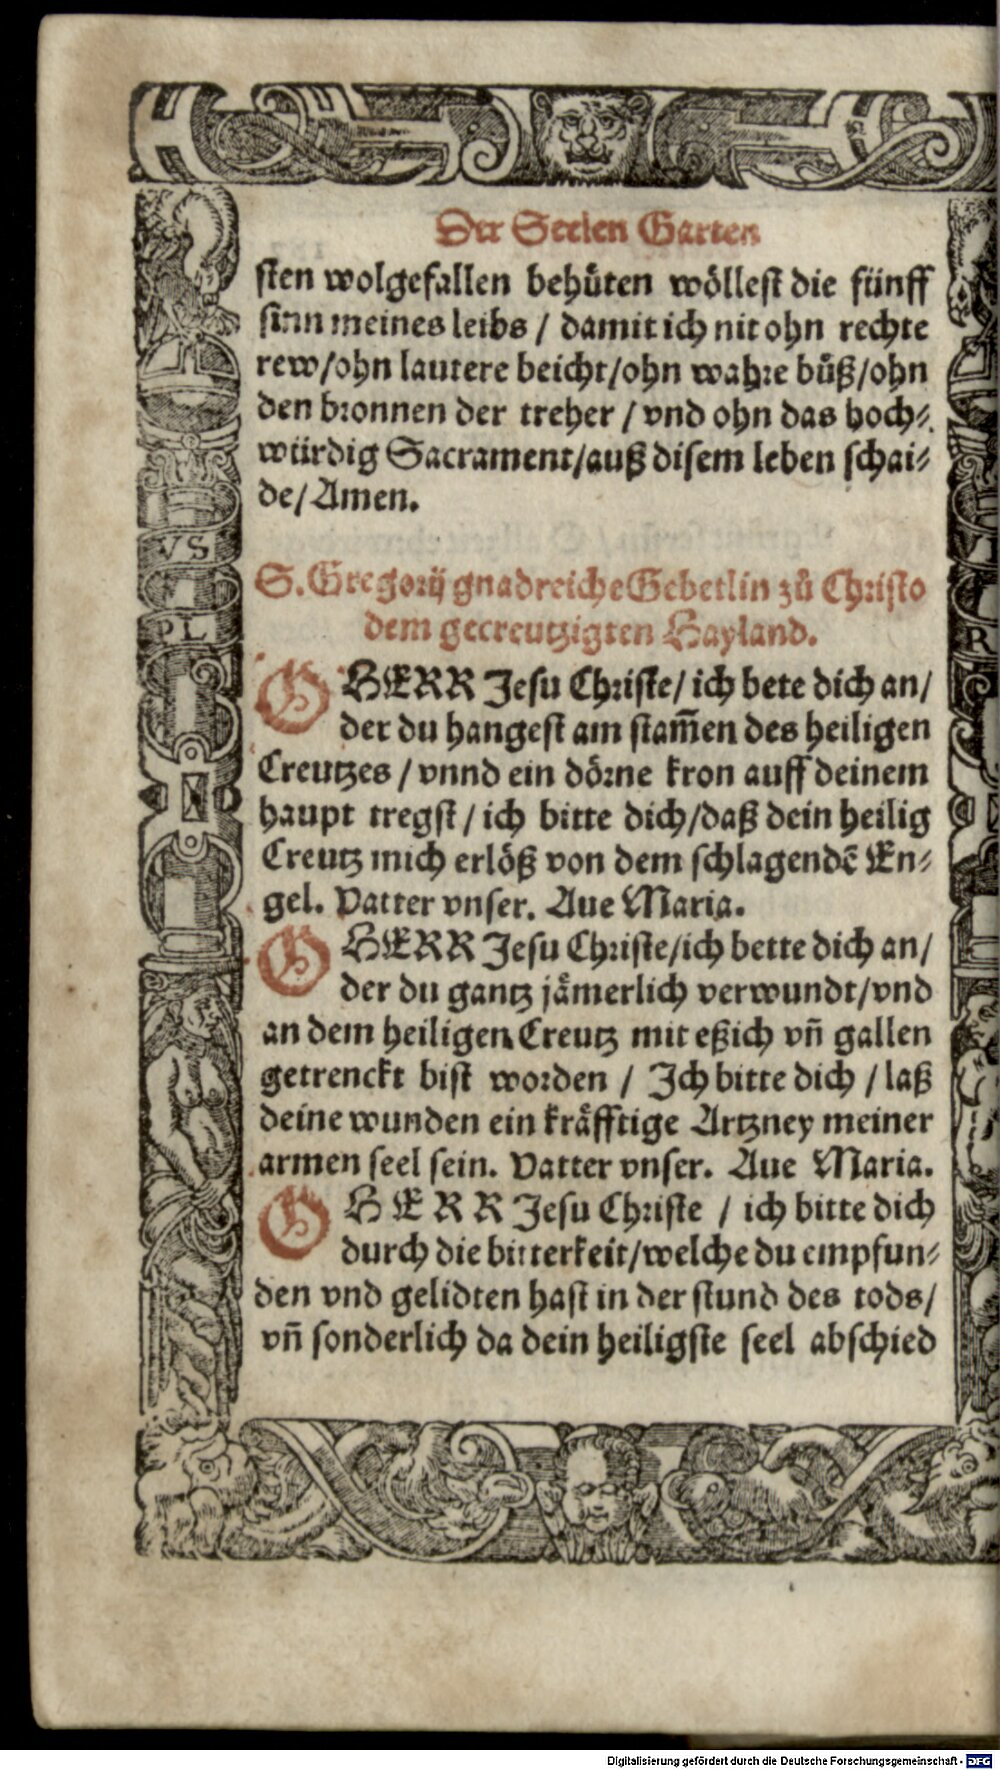 Der Seelen Garten
sten wolgefallen behüten wöllest die fünff
sinn meines leibs / damit ich nit ohn rechte
rew/ohn lautere beicht/ohn wahre bůß/ohn
den bronnen der treher / vnd ohn das hoch⸗
würdig Sacrament/auß disem leben schai⸗
de/Amen.
S. Gregorij gnadreiche Gebetlin zů Christo
dem gecreutzigten Hayland.
O HERR Jesu Christe/ ich bete dich an/
der du hangest am stam̃en des heiligen
Creutzes / vnnd ein dörne kron auff deinem
haupt tregst / ich bitte dich/daß dein heilig
Creutz mich erlöß von dem schlagendẽ En⸗
gel. Vatter vnser. Aue Maria.
O HERR Jesu Christe/ich bette dich an/
der du gantz jämerlich verwundt/vnd
an dem heiligen Creutz mit eßich vñ gallen
getrenckt bist worden / Ich bitte dich / laß
deine wunden ein kräfftige Artzney meiner
armen seel sein. Vatter vnser. Aue Maria.
O HERR Jesu Christe / ich bitte dich
durch die bitterkeit/welche du empfun⸗
den vnd gelidten hast in der stund des tods/
vñ sonderlich da dein heiligste seel abschied
VS
PL
R
Digitalisierung gefördert durch die Deutsche Forschungsgemeinschaft - DFG